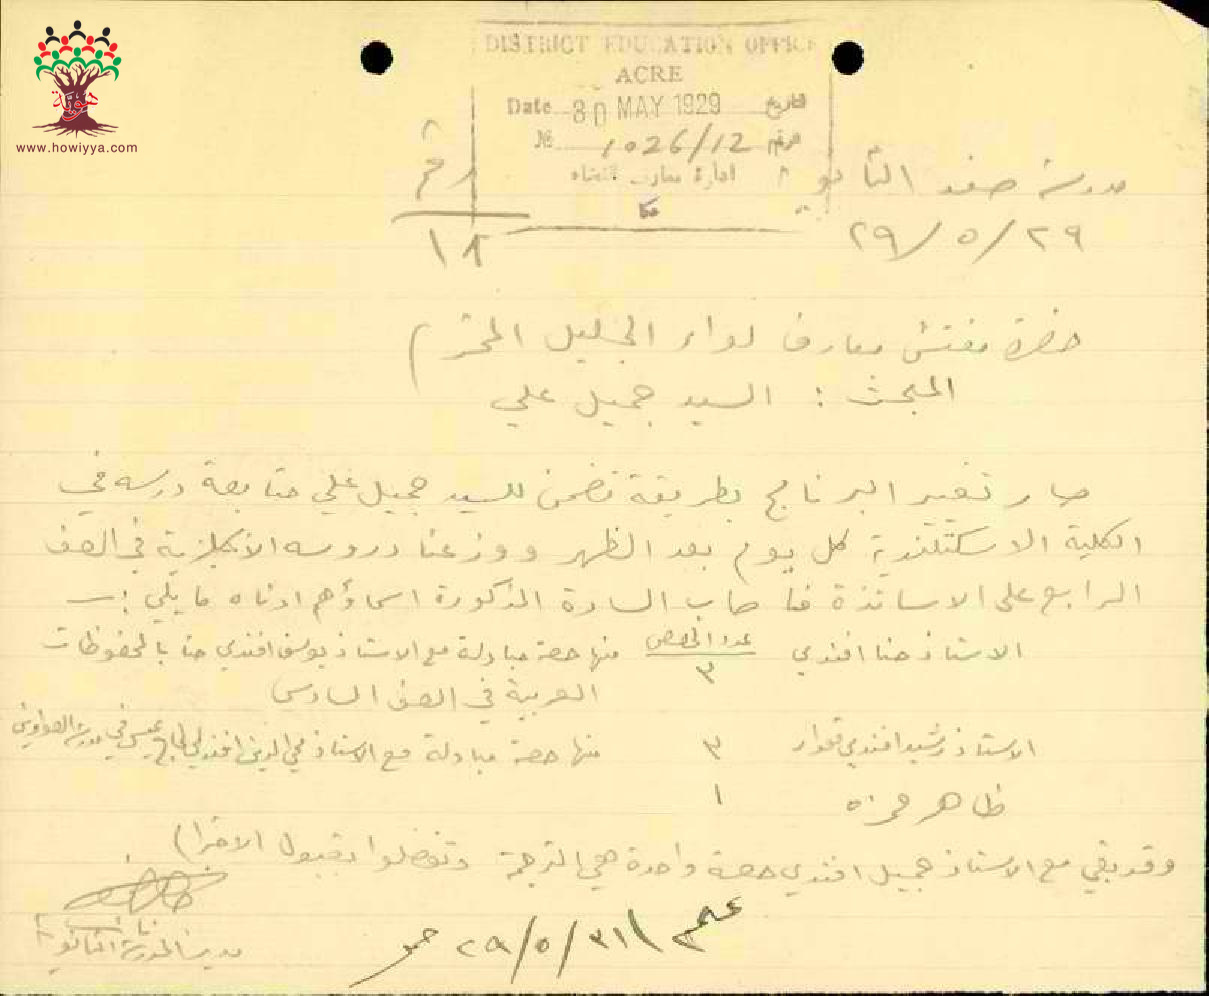 هوية
www.howiyya.com
DISTRICT EDUCATION OFFICE
ACRE
Date 30 MAY 1929 التاريخ
№ 1026/12 الرقم
ادارة معارف قضاء
عكا
مدرسة صفد الثانوية
٢٩/٥/٢٩
١٨
حضرة مفتش معارف لواء الجليل المحترم
المبحث : السيد جميل علي
صار تغيير البرنامج بطريقة تضمن للسيد جميل علي متابعة درسه في
الكلية الاسكتلندية كل يوم بعد الظهر ووزعنا دروسه الانكليزية في الصف
الرابع على الاساتذة فاصاب السادة المذكورة اسماؤهم ادناه ما يلي :ـ
عدد الحصص
الاستاذ حنا افندي ٣ منها حصة مبادلة مع الاستاذ يوسف افندي حنا بالمحفوظات
العربية في الصف السادس
الاستاذ رشيد افندي قعوار ٣ منها حصة مبادلة مع الاستاذ محي الدين افندي الحاج عيسى في
ظاهر حمزه ١
وقد بقي مع الاستاذ جميل افندي حصة واحدة هي الترجمة وتفضلوا بقبول الاحترام
مدير المدرسة الثانوية
علم ٢٩/٥/٣١